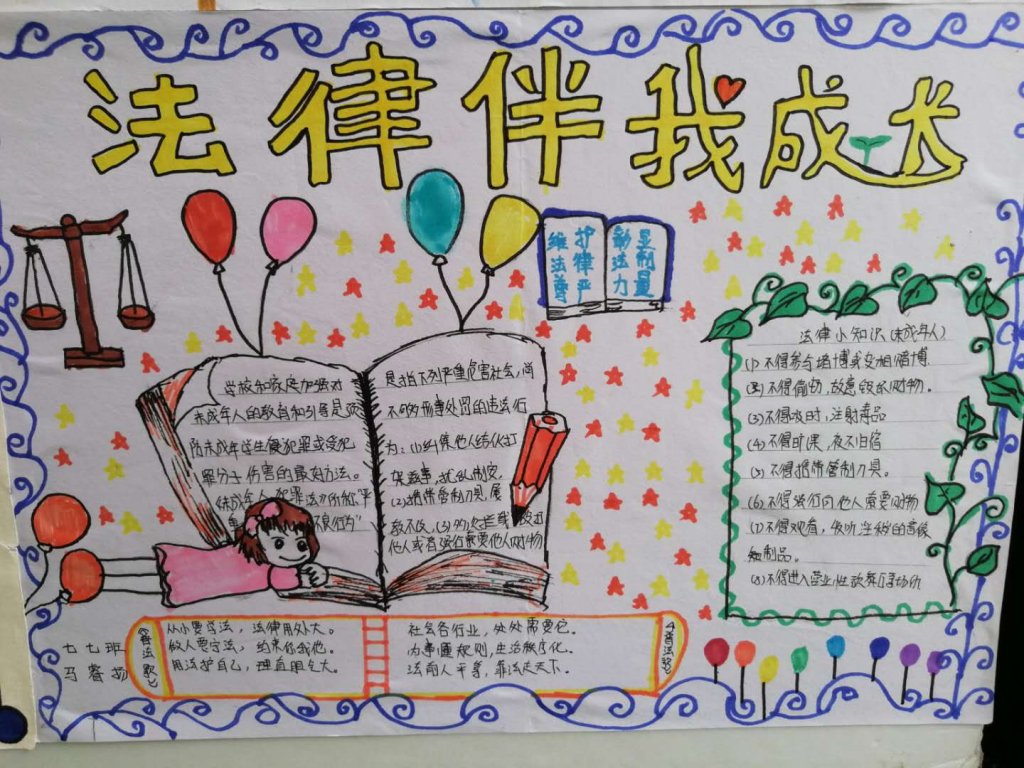 法律伴我成长
维护
法律
尊严
彰显
法制
力量
学校和家庭加强对
未成年人的教育和引导是预
防未成年学生侵犯罪或受犯
罪分子伤害的最好方法。
是指下列严重危害社会,尚
不够刑事处罚的违法行
为:(1)纠集他人结伙
滋事,扰乱制安,
(2)携带管制刀具,屡
教不改,(3)多次拦截
他人或者强行索要他人财物
法律小知识(未成年人)
(1)不得参与赌博或变相赌博
(2)不得偷窃,故意毁坏财物。
(3)不得吸时,注射毒品
(4)不得旷课,夜不归宿
(5)不得携带管制刀具。
(6)不得强行向他人索要财物
(7)不得观看,收听
制品。
(8)不得进入营业性歌舞厅等场所
七七班
马睿扬
普法歌
从小要守法,法律用处大。
做人要守法,约束你我他。
用法护自己,理直朋气大。
社会各行业,处处需要它。
内事懂规则,生活秩序化。
法商人平等,靠法走天下。
普法歌